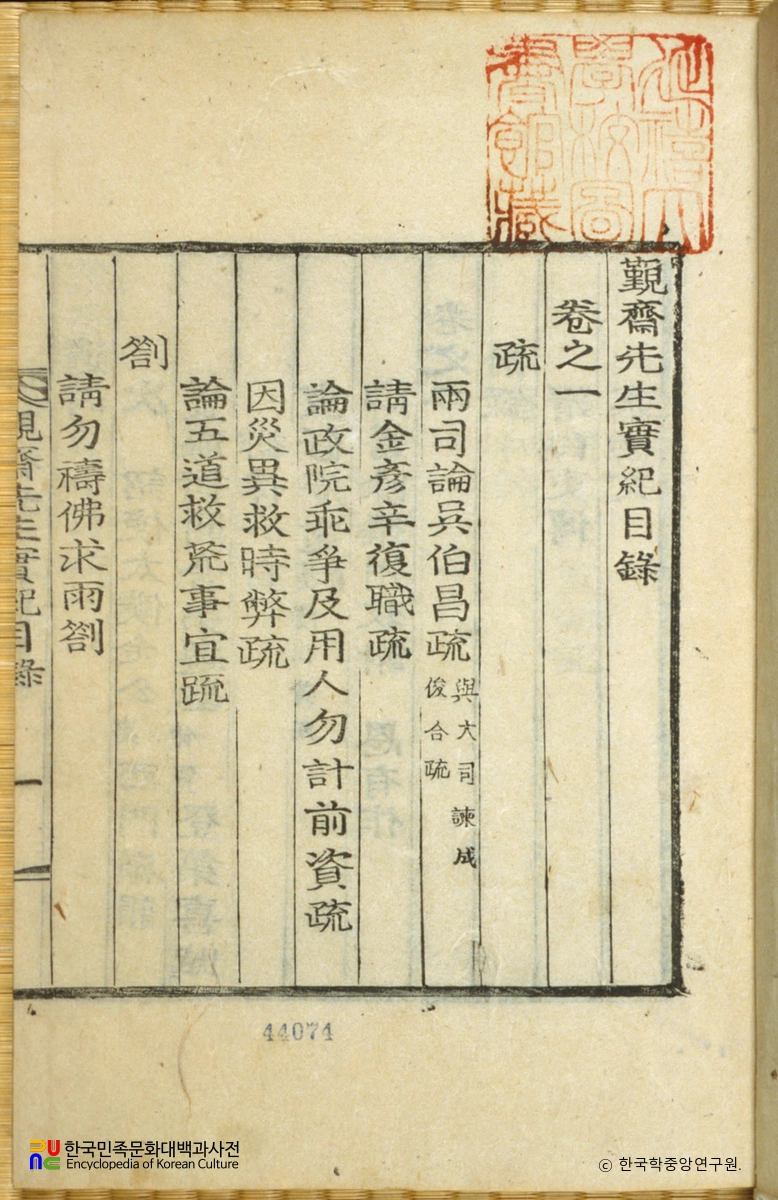 延禧大
學校圖
書館藏
覲齋先生實紀目錄
卷之一
疏
兩司論吳伯昌疏 與大司諫成
俊合疏
請金彥辛復職疏
論政院乖爭及用人勿計前資疏
因災異救時弊疏
論五道救荒事宜疏
劄
請勿禱佛求雨劄
覲齋先生實紀目錄 一
44074
한국민족문화대백과사전
Encyclopedia of Korean Culture
© 한국학중앙연구원.